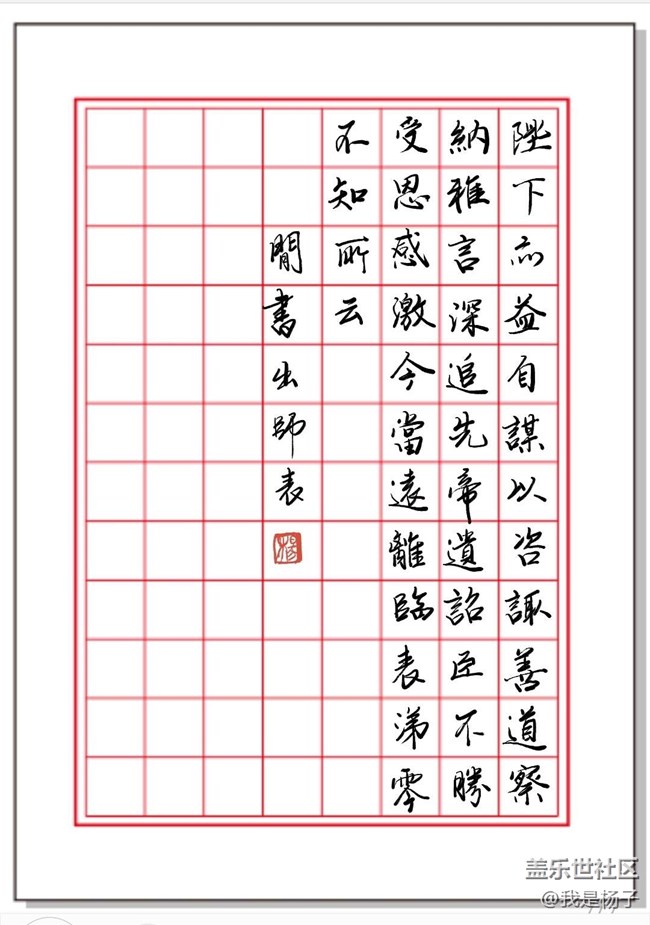 陛下亦益自謀以咨諏善道察
納雅言深追先帝遺詔臣不勝
受恩感激今當遠離臨表涕零
不知所云
閒書出師表
楊
盖乐世社区
@我是杨子